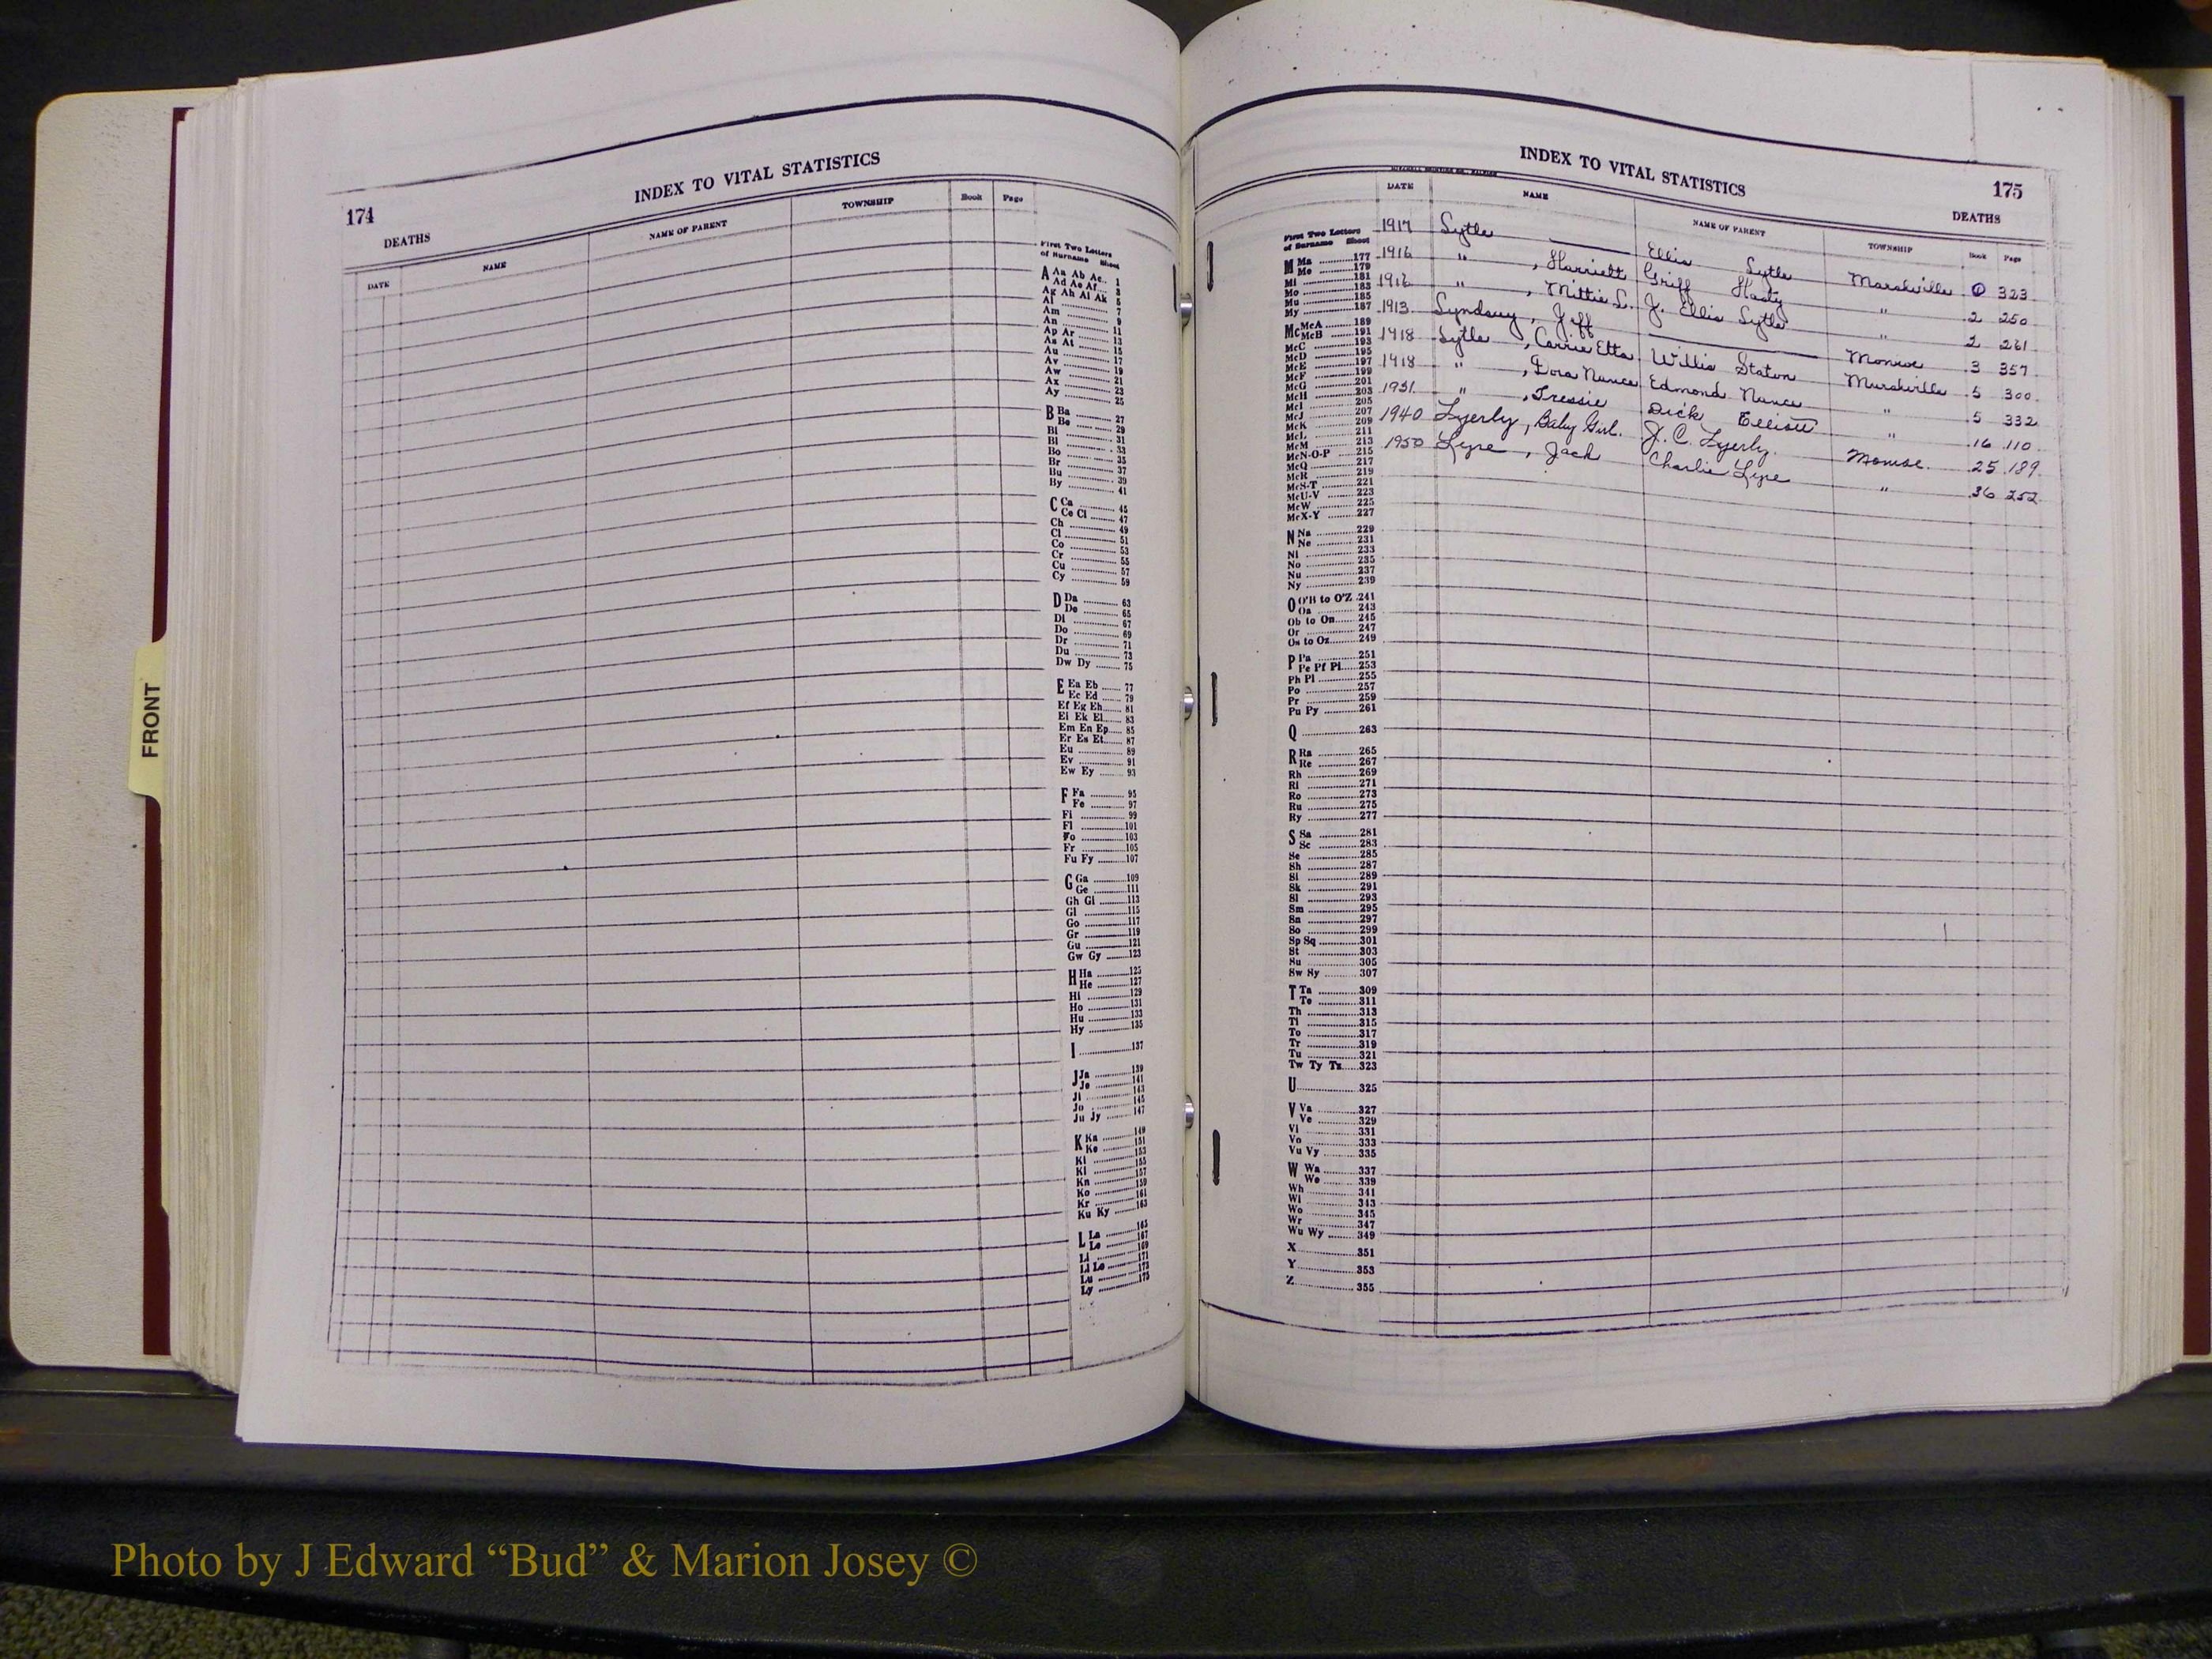 FRONT
174
INDEX TO VITAL STATISTICS
DEATHS
DATE NAME NAME OF PARENT TOWNSHIP Book Page
First Two Letters
of Surname Sheet
A Aa Ab Ac 1
Ad Ae Af 3
Ag Ah Ai Ak 5
Al 7
Am 9
An 11
Ap Ar 13
As At 15
Au 17
Av 19
Aw 21
Ax 23
Ay 25
B Ba 27
Be 29
Bi 31
Bl 33
Bo 35
Br 37
Bu 39
By 41
C Ca 45
Ce Ci 47
Ch 49
Cl 51
Co 53
Cr 55
Cu 57
Cy 59
D Da 63
De 65
Di 67
Do 69
Dr 71
Du 73
Dw Dy 75
E Ea Eb 77
Ec Ed 79
Ef Eg Eh 81
Ei Ek El 83
Em En Ep 85
Er Es Et 87
Eu 89
Ev 91
Ew Ey 93
F Fa 95
Fe 97
Fi 99
Fl 101
Fo 103
Fr 105
Fu Fy 107
G Ga 109
Ge 111
Gh Gi 113
Gl 115
Go 117
Gr 119
Gu 121
Gw Gy 123
H Ha 125
He 127
Hi 129
Ho 131
Hu 133
Hy 135
I 137
J Ja 139
Je 141
Ji 143
Jo 145
Ju Jy 147
K Ka 149
Ke 151
Ki 153
Kl 155
Kn 157
Ko 159
Kr 161
Ku Ky 163
L La 165
Le 167
Li 169
Ll Lo 171
Lu 173
Ly 175
INDEX TO VITAL STATISTICS
175
DEATHS
DATE NAME NAME OF PARENT TOWNSHIP Book Page
1917 Lytle Ellis Lytle Marshville 323
1916 " , Harriett Griff Hasty " 2 250
1916 " , Mittie L. J. Ellis Lytle " 2 261
1913 Lyndsay, Jeff Monroe 3 357
1918 Lytle , Carrie Etta Willis Staton Marshville 5 300
1918 " , Dora Nance Edmond Nance " 5 332
1931 " , Tressie Dick Elliott " 16 110
1940 Lyerly, Baby Girl. J. C. Lyerly. Monroe. 25 189
1950 Lyre , Jack Charlie Lyre " 36 252
First Two Letters
of Surname Sheet
M Ma 177
Me 179
Mi 181
Mo 183
Mu 185
My 187
Mc McA 189
McB 191
McC 193
McD 195
McE 197
McF 199
McG 201
McH 203
McI 205
McJ 207
McK 209
McL 211
McM 213
McN-O-P 215
McQ 217
McR 219
McS-T 221
McU-V 223
McW 225
McX-Y 227
N Na 229
Ne 231
Ni 233
No 235
Nu 237
Ny 239
O O'B to O'Z 241
Oa 243
Ob to On 245
Or 247
Os to Oz 249
P Pa 251
Pe Pf Pi 253
Ph Pl 255
Po 257
Pr 259
Pu Py 261
Q 263
R Ra 265
Re 267
Rh 269
Ri 271
Ro 273
Ru 275
Ry 277
S Sa 281
Sc 283
Se 285
Sh 287
Si 289
Sk 291
Sl 293
Sm 295
Sn 297
So 299
Sp Sq 301
St 303
Su 305
Sw Sy 307
T Ta 309
Te 311
Th 313
Ti 315
To 317
Tr 319
Tu 321
Tw Ty Tz 323
U 325
V Va 327
Ve 329
Vi 331
Vo 333
Vu Vy 335
W Wa 337
We 339
Wh 341
Wi 343
Wo 345
Wr 347
Wu Wy 349
X 351
Y 353
Z 355
Photo by J Edward “Bud” & Marion Josey ©